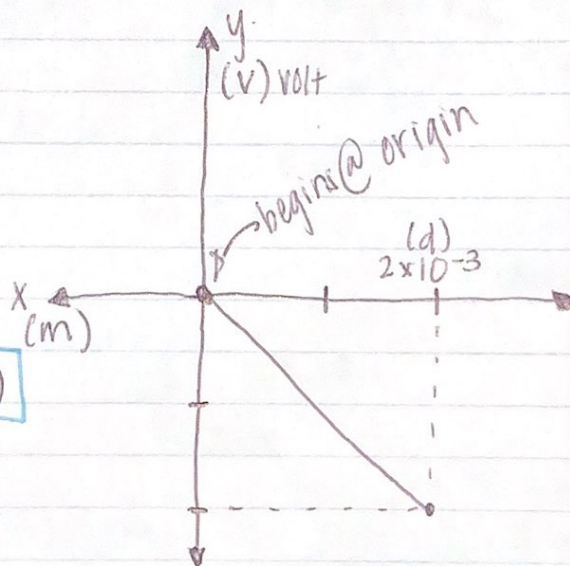 y.
(V) volt
begins @ origin
(d)
2x10⁻³
X
(m)
)